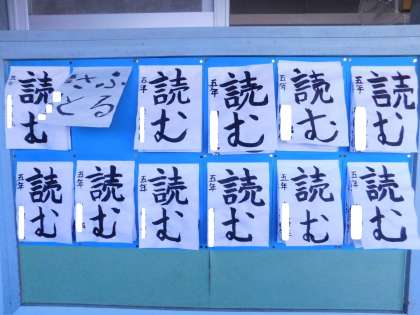 読む
ふる
さと
読む
五年
読む
五年
読む
五年
読む
五年
読む
五年
読む
五年
読む
五年
読む
五年
読む
五年
読む
五年